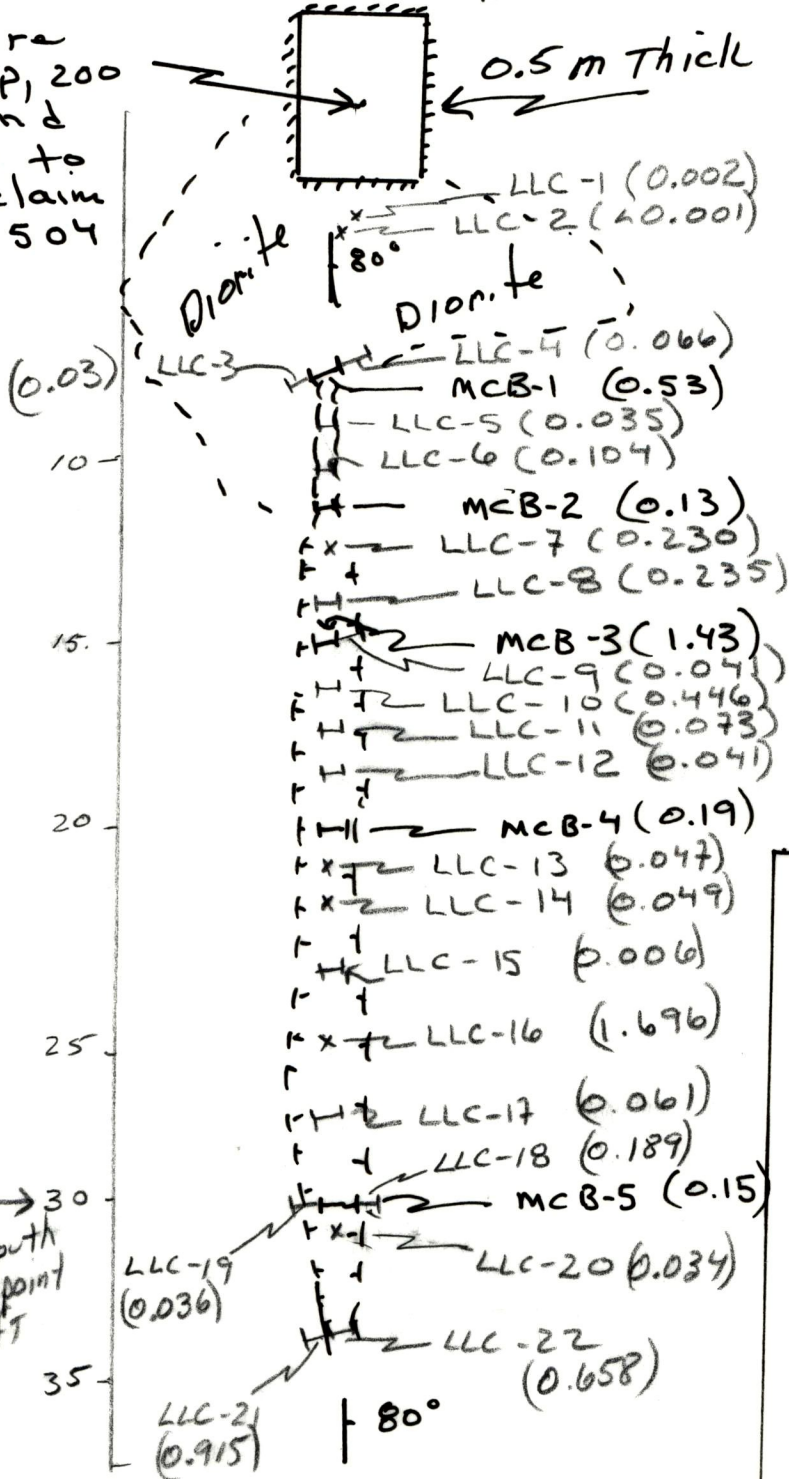 re
P, 200
nd
to
claim
504
0.5 m Thick
LLC-1 (0.002)
LLC-2 (<0.001)
80°
Diorite
Diorite
LLC-4 (0.066)
(0.03) LLC-3
MCB-1 (0.53)
LLC-5 (0.035)
LLC-6 (0.104)
10
MCB-2 (0.13)
LLC-7 (0.230)
LLC-8 (0.235)
15.
MCB-3 (1.43)
LLC-9 (0.041)
LLC-10 (0.446)
LLC-11 (0.073)
LLC-12 (0.041)
20
MCB-4 (0.19)
LLC-13 (0.047)
LLC-14 (0.049)
LLC-15 (0.006)
25
LLC-16 (1.696)
LLC-17 (0.061)
LLC-18 (0.189)
30
MCB-5 (0.15)
outh
point
LLC-19
(0.036)
LLC-20 (0.034)
LLC-22
(0.658)
35
LLC-21
(0.915)
80°